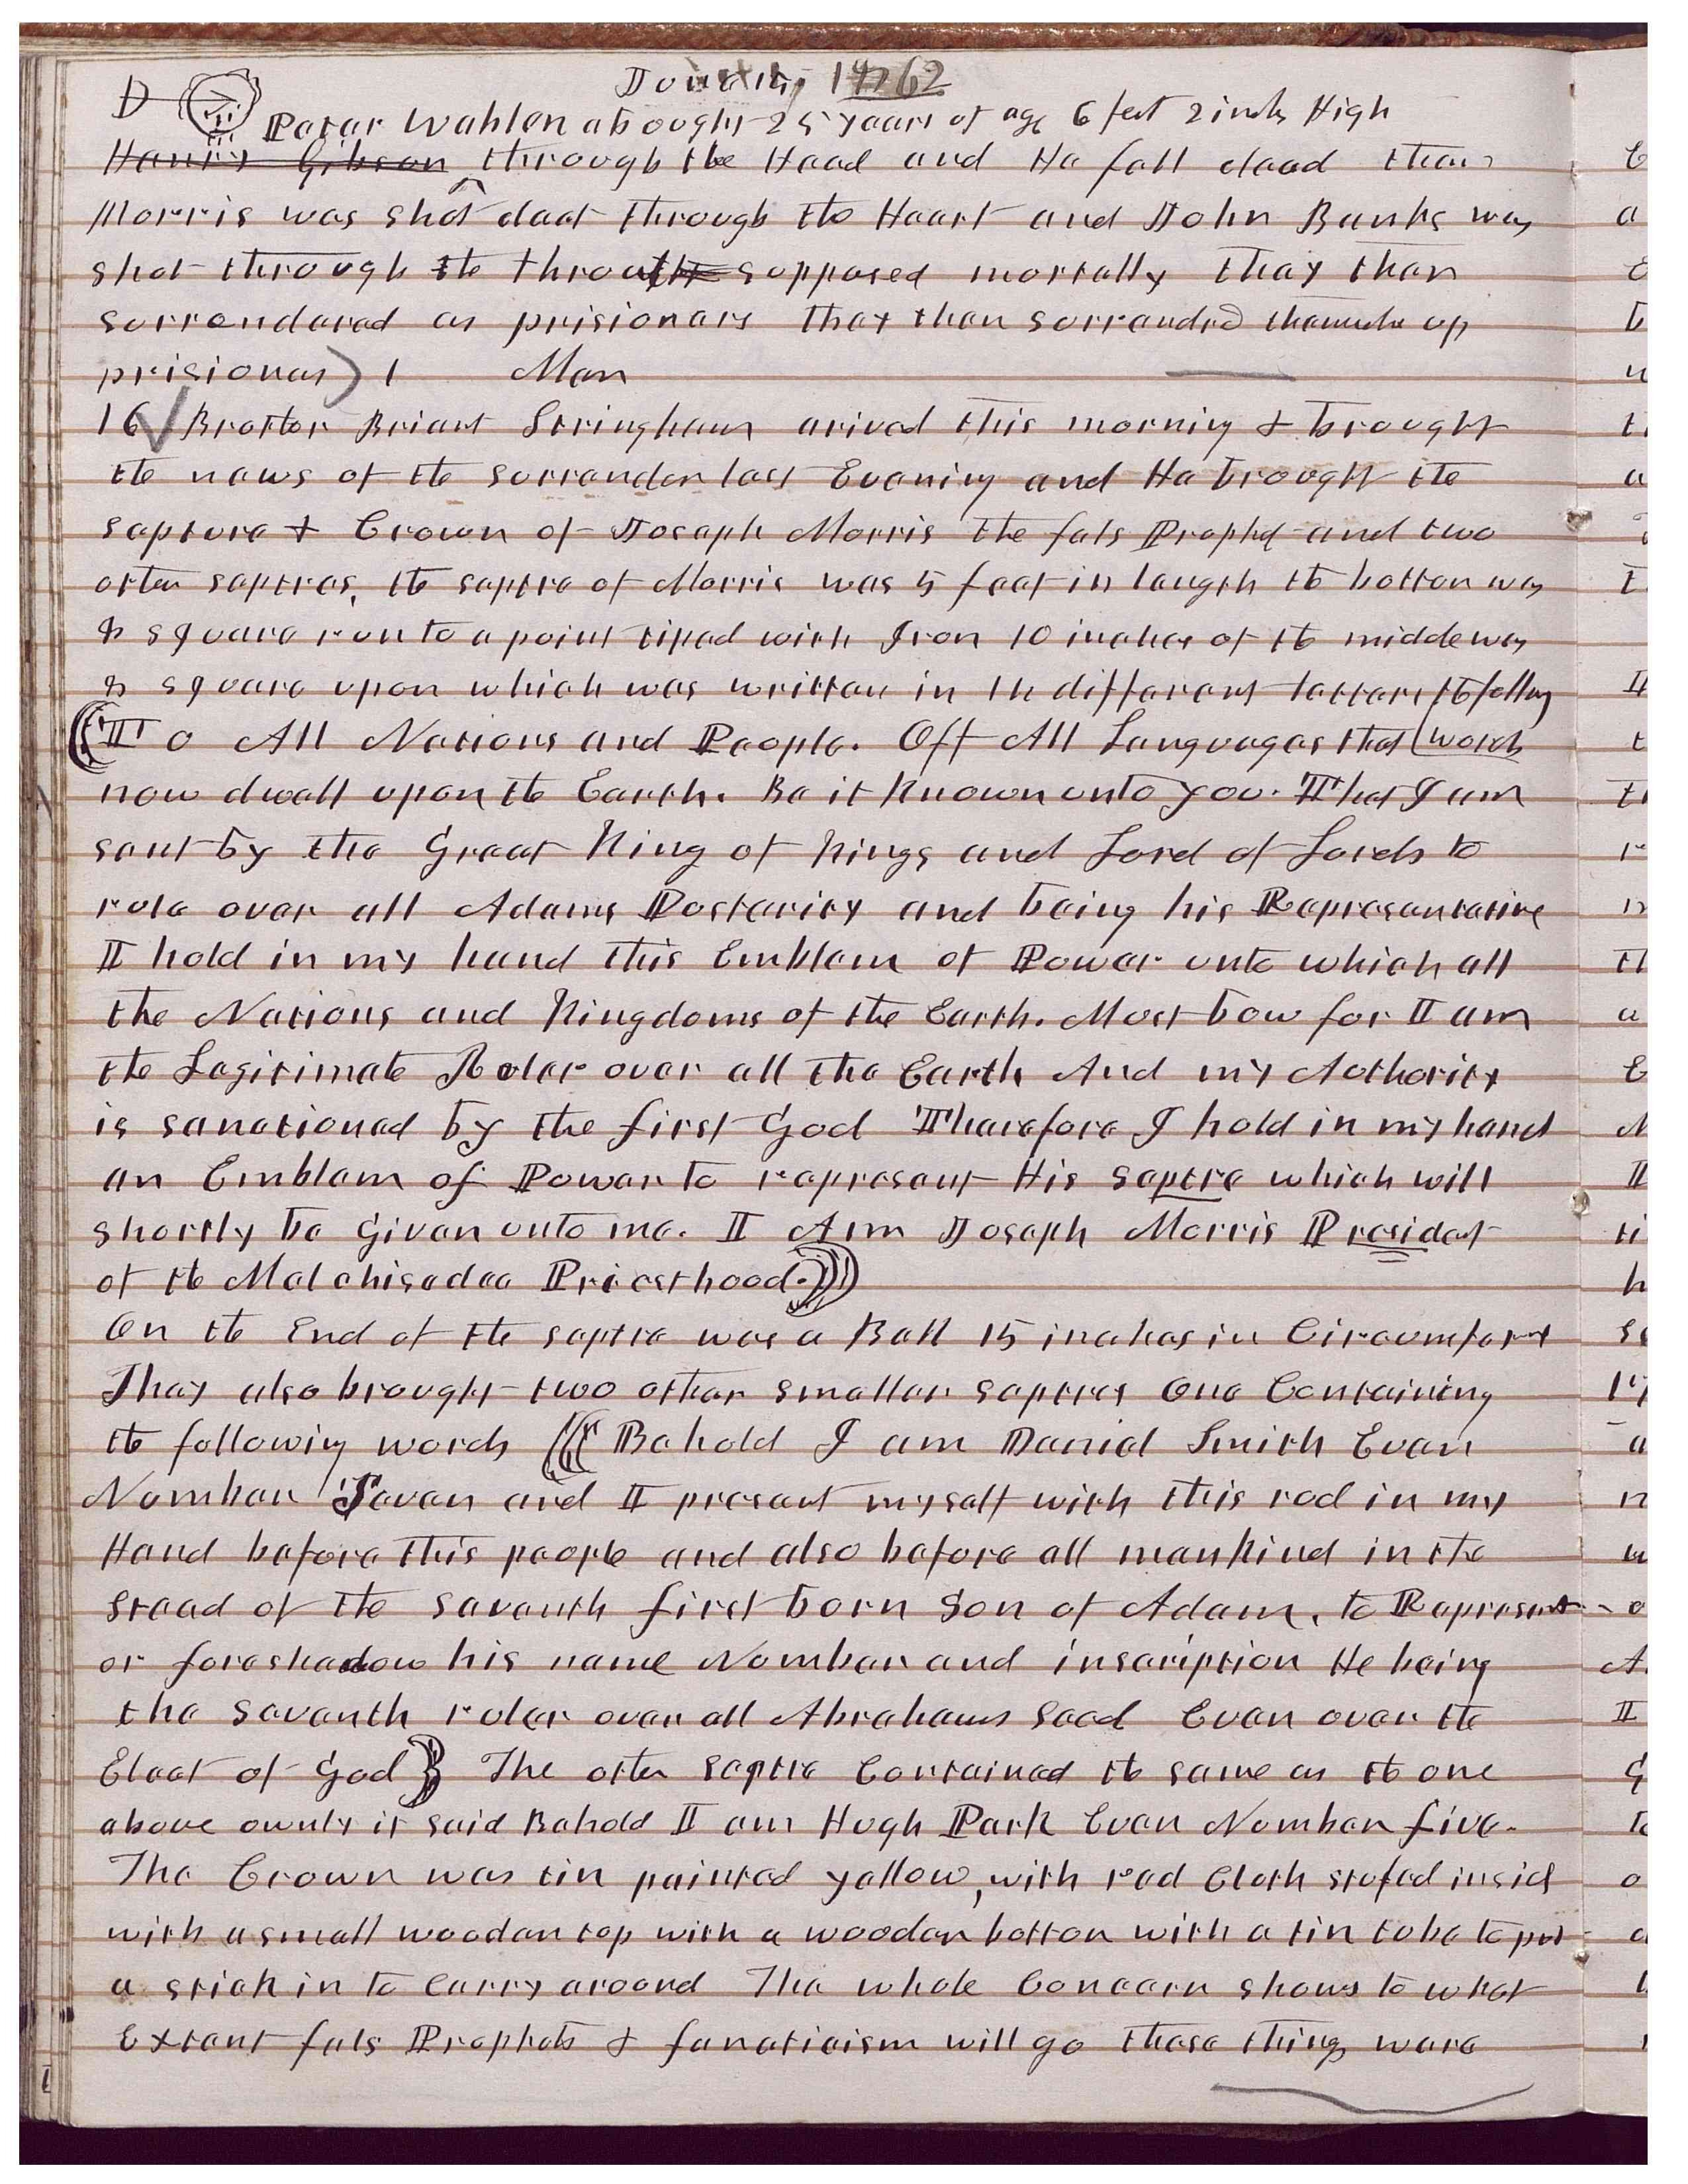 June 15, 1862
Peter Wahlen abought 25 years of age 6 feet 2 inch High
Henry Gibson through the Head and He fell dead then
Morris was shot dead through the Heart and John Banks was
shot through the throat supposed mortally they then
surrendered as prisioners they then surrendrd themselvs up
prisioners) 1 Man
16 Brother Briant Stringham arived this morning & brought
the news of the surrender last Evening and He brought the
septure & Crown of Joseph Morris the fals Prophet and two
other septres, the septre of Morris was 5 feet in length the bottom was
8 square run to a point tiped with Iron 10 inches of the middle was
8 square upon which was written in the different letters the following
((To All Nations and People. Off All Languages that words
now dwell upon the Earth. Be it known unto you. That I am
sent by the Great King of Kings and Lord of Lords to
rule over all Adams Posterity and being his Representative
I hold in my hand this Emblem of Power unto which all
the Nations and Kingdoms of the Earth. Must bow for I am
the Legitimate Ruler over all the Earth And my Authority
is sanctioned by the first God Therefore I hold in my hand
an Emblem of Power to represent His septre which will
shortly be Given unto me. I Am Joseph Morris Presidet
of the Melchisedec Priesthood.)))
On the End of the septre was a Ball 15 inches in Circumfert
They also brought two other smaller septres One Containing
the following words (((Behold I am Daniel Smith Even
Number Seven and I present myself with this rod in my
Hand before this people and also before all mankind in the
stead of the seventh first born Son of Adam, to Represent
or foreshadow his name Number and inscription He being
the seventh ruler over all Abrahams seed Even over the
Elect of God}} The other septre Contained the same as the one
above ownly it said Behold I am Hugh Park Even Number five.
The Crown was tin painted yellow, with red Cloth stufed insid
with a small wooden top with a wooden bottom with a tin tube to put
a stick in to Carry around The whole Concern shows to what
Extent fals Prophets & fanaticism will go these thing were